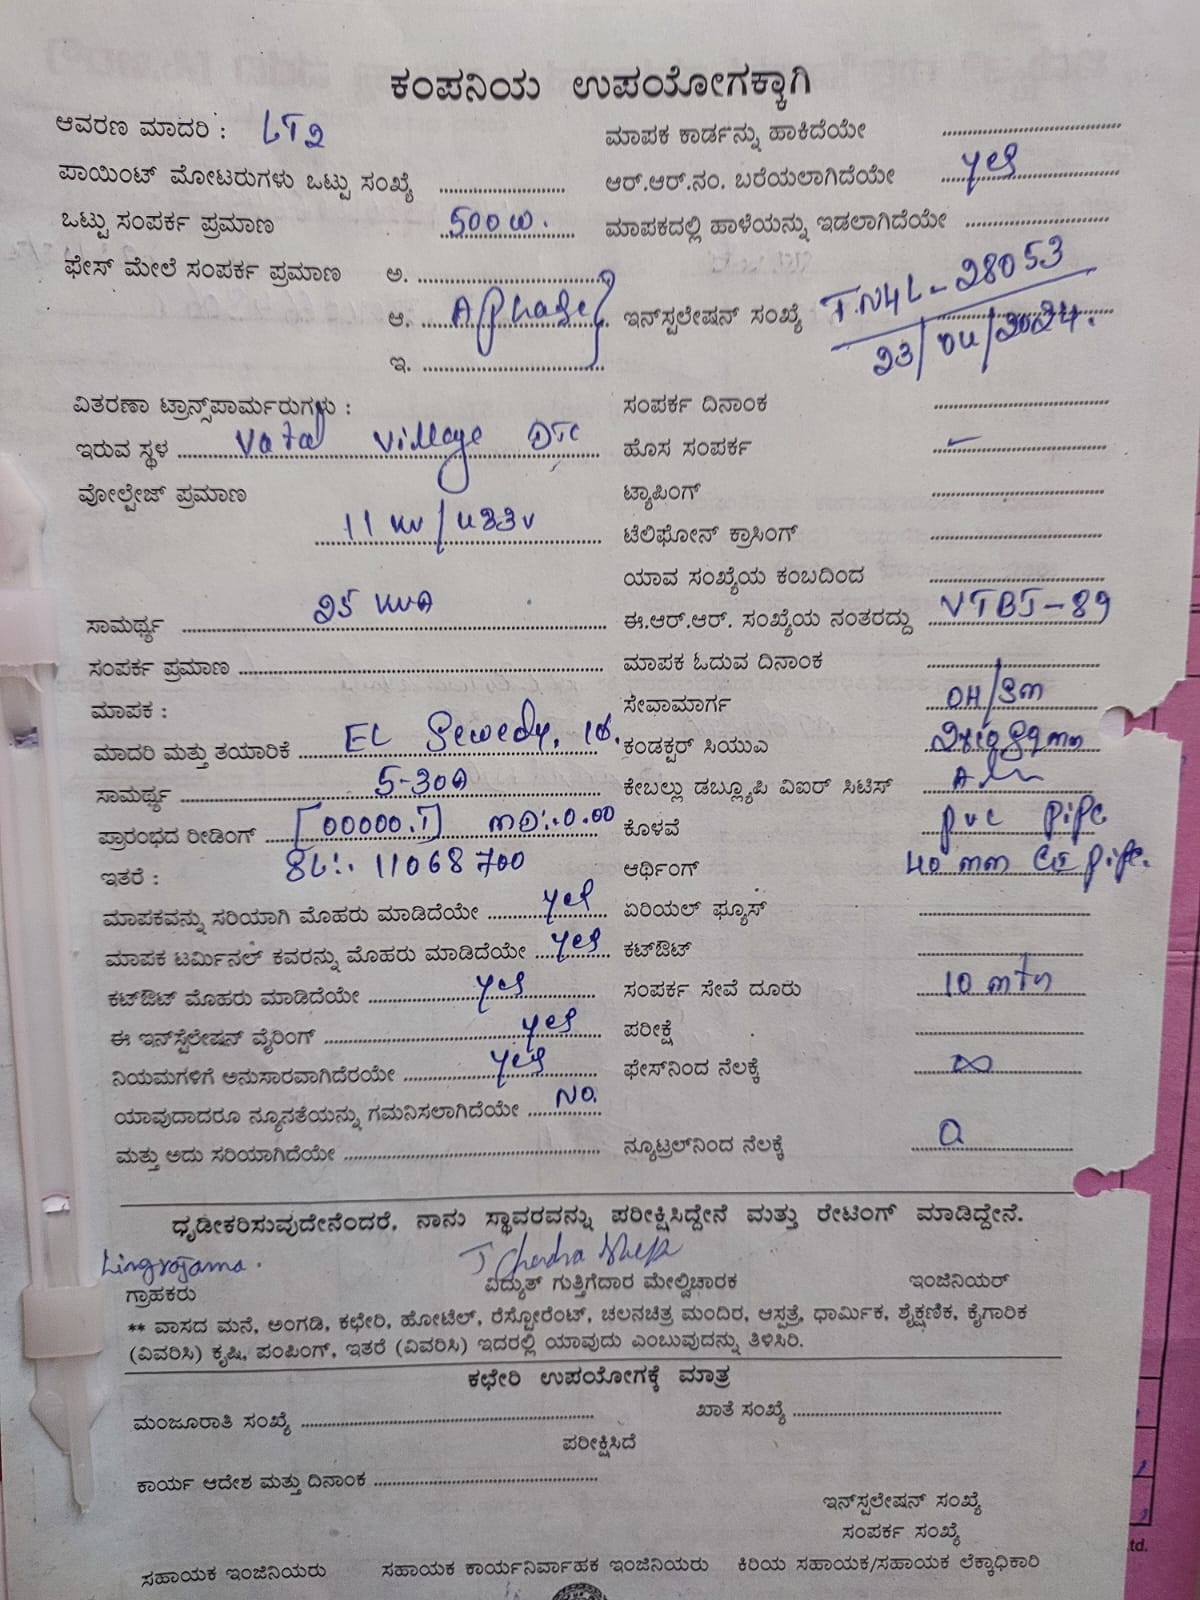 ಕಂಪನಿಯ ಉಪಯೋಗಕ್ಕಾಗಿ
ಆವರಣ ಮಾದರಿ : LT2
ಮಾಪಕ ಕಾರ್ಡನ್ನು ಹಾಕಿದೆಯೇ
ಪಾಯಿಂಟ್ ಮೋಟರುಗಳು ಒಟ್ಟು ಸಂಖ್ಯೆ
ಆರ್.ಆರ್.ನಂ. ಬರೆಯಲಾಗಿದೆಯೇ yes
ಒಟ್ಟು ಸಂಪರ್ಕ ಪ್ರಮಾಣ 500 W.
ಮಾಪಕದಲ್ಲಿ ಹಾಳೆಯನ್ನು ಇಡಲಾಗಿದೆಯೇ
ಫೇಸ್ ಮೇಲೆ ಸಂಪರ್ಕ ಪ್ರಮಾಣ ಅ.
ಆ. A phase
ಇನ್‌ಸ್ಟಲೇಷನ್ ಸಂಖ್ಯೆ TN4L-28053
23/04/2024.
ಇ.
ವಿತರಣಾ ಟ್ರಾನ್ಸ್‌ಪಾರ್ಮರುಗಳು :
ಸಂಪರ್ಕ ದಿನಾಂಕ
ಇರುವ ಸ್ಥಳ Vatal Village DTC
ಹೊಸ ಸಂಪರ್ಕ
ವೋಲ್ಟೇಜ್ ಪ್ರಮಾಣ
ಟ್ಯಾಪಿಂಗ್
11 kv / 433v
ಟೆಲಿಫೋನ್ ಕ್ರಾಸಿಂಗ್
ಯಾವ ಸಂಖ್ಯೆಯ ಕಂಬದಿಂದ
ಸಾಮರ್ಥ್ಯ 25 kva
ಈ.ಆರ್.ಆರ್. ಸಂಖ್ಯೆಯ ನಂತರದ್ದು VTBJ-89
ಸಂಪರ್ಕ ಪ್ರಮಾಣ
ಮಾಪಕ ಓದುವ ದಿನಾಂಕ
ಮಾಪಕ :
ಸೇವಾಮಾರ್ಗ OH/SM
ಮಾದರಿ ಮತ್ತು ತಯಾರಿಕೆ EL Sewedy,
ಕಂಡಕ್ಟರ್ ಸಿಯುಎ
ಸಾಮರ್ಥ್ಯ 5-30A
ಕೇಬಲ್ಲು ಡಬ್ಲ್ಯೂಪಿ ವಿಐಆರ್ ಸಿಟಿಸ್
ಪ್ರಾರಂಭದ ರೀಡಿಂಗ್ [00000.1] MD:-0.00
ಕೊಳವೆ pvc pipe
ಇತರೆ : SL:- 11068700
ಆರ್ಥಿಂಗ್ 40 mm GI pipe.
ಮಾಪಕವನ್ನು ಸರಿಯಾಗಿ ಮೊಹರು ಮಾಡಿದೆಯೇ yes
ಏರಿಯಲ್ ಫ್ಯೂಸ್
ಮಾಪಕ ಟರ್ಮಿನಲ್ ಕವರನ್ನು ಮೊಹರು ಮಾಡಿದೆಯೇ yes
ಕಟ್‌ಔಟ್
ಕಟ್‌ಔಟ್ ಮೊಹರು ಮಾಡಿದೆಯೇ yes
ಸಂಪರ್ಕ ಸೇವೆ ದೂರು 10 mtr
ಈ ಇನ್‌ಸ್ಟೆಲೇಷನ್ ವೈರಿಂಗ್ yes
ಪರೀಕ್ಷೆ
ನಿಯಮಗಳಿಗೆ ಅನುಸಾರವಾಗಿದೆರಯೇ yes
ಫೇಸ್‌ನಿಂದ ನೆಲಕ್ಕೆ ∞
ಯಾವುದಾದರೂ ನ್ಯೂನತೆಯನ್ನು ಗಮನಿಸಲಾಗಿದೆಯೇ No.
ಮತ್ತು ಅದು ಸರಿಯಾಗಿದೆಯೇ
ನ್ಯೂಟ್ರಲ್‌ನಿಂದ ನೆಲಕ್ಕೆ
ಧೃಡೀಕರಿಸುವುದೇನೆಂದರೆ, ನಾನು ಸ್ಥಾವರವನ್ನು ಪರೀಕ್ಷಿಸಿದ್ದೇನೆ ಮತ್ತು ರೇಟಿಂಗ್ ಮಾಡಿದ್ದೇನೆ.
ಗ್ರಾಹಕರು
ವಿದ್ಯುತ್ ಗುತ್ತಿಗೆದಾರ ಮೇಲ್ವಿಚಾರಕ
ಇಂಜಿನಿಯರ್
** ವಾಸದ ಮನೆ, ಅಂಗಡಿ, ಕಛೇರಿ, ಹೋಟೆಲ್, ರೆಸ್ಟೋರೆಂಟ್, ಚಲನಚಿತ್ರ ಮಂದಿರ, ಆಸ್ಪತ್ರೆ, ಧಾರ್ಮಿಕ, ಶೈಕ್ಷಣಿಕ, ಕೈಗಾರಿಕ
(ವಿವರಿಸಿ) ಕೃಷಿ, ಪಂಪಿಂಗ್, ಇತರೆ (ವಿವರಿಸಿ) ಇದರಲ್ಲಿ ಯಾವುದು ಎಂಬುವುದನ್ನು ತಿಳಿಸಿರಿ.
ಕಛೇರಿ ಉಪಯೋಗಕ್ಕೆ ಮಾತ್ರ
ಮಂಜೂರಾತಿ ಸಂಖ್ಯೆ
ಖಾತೆ ಸಂಖ್ಯೆ
ಪರೀಕ್ಷಿಸಿದೆ
ಕಾರ್ಯ ಆದೇಶ ಮತ್ತು ದಿನಾಂಕ
ಇನ್‌ಸ್ಟಲೇಷನ್ ಸಂಖ್ಯೆ
ಸಂಪರ್ಕ ಸಂಖ್ಯೆ
ಸಹಾಯಕ ಇಂಜಿನಿಯರು
ಸಹಾಯಕ ಕಾರ್ಯನಿರ್ವಾಹಕ ಇಂಜಿನಿಯರು
ಕಿರಿಯ ಸಹಾಯಕ/ಸಹಾಯಕ ಲೆಕ್ಕಾಧಿಕಾರಿ
td.